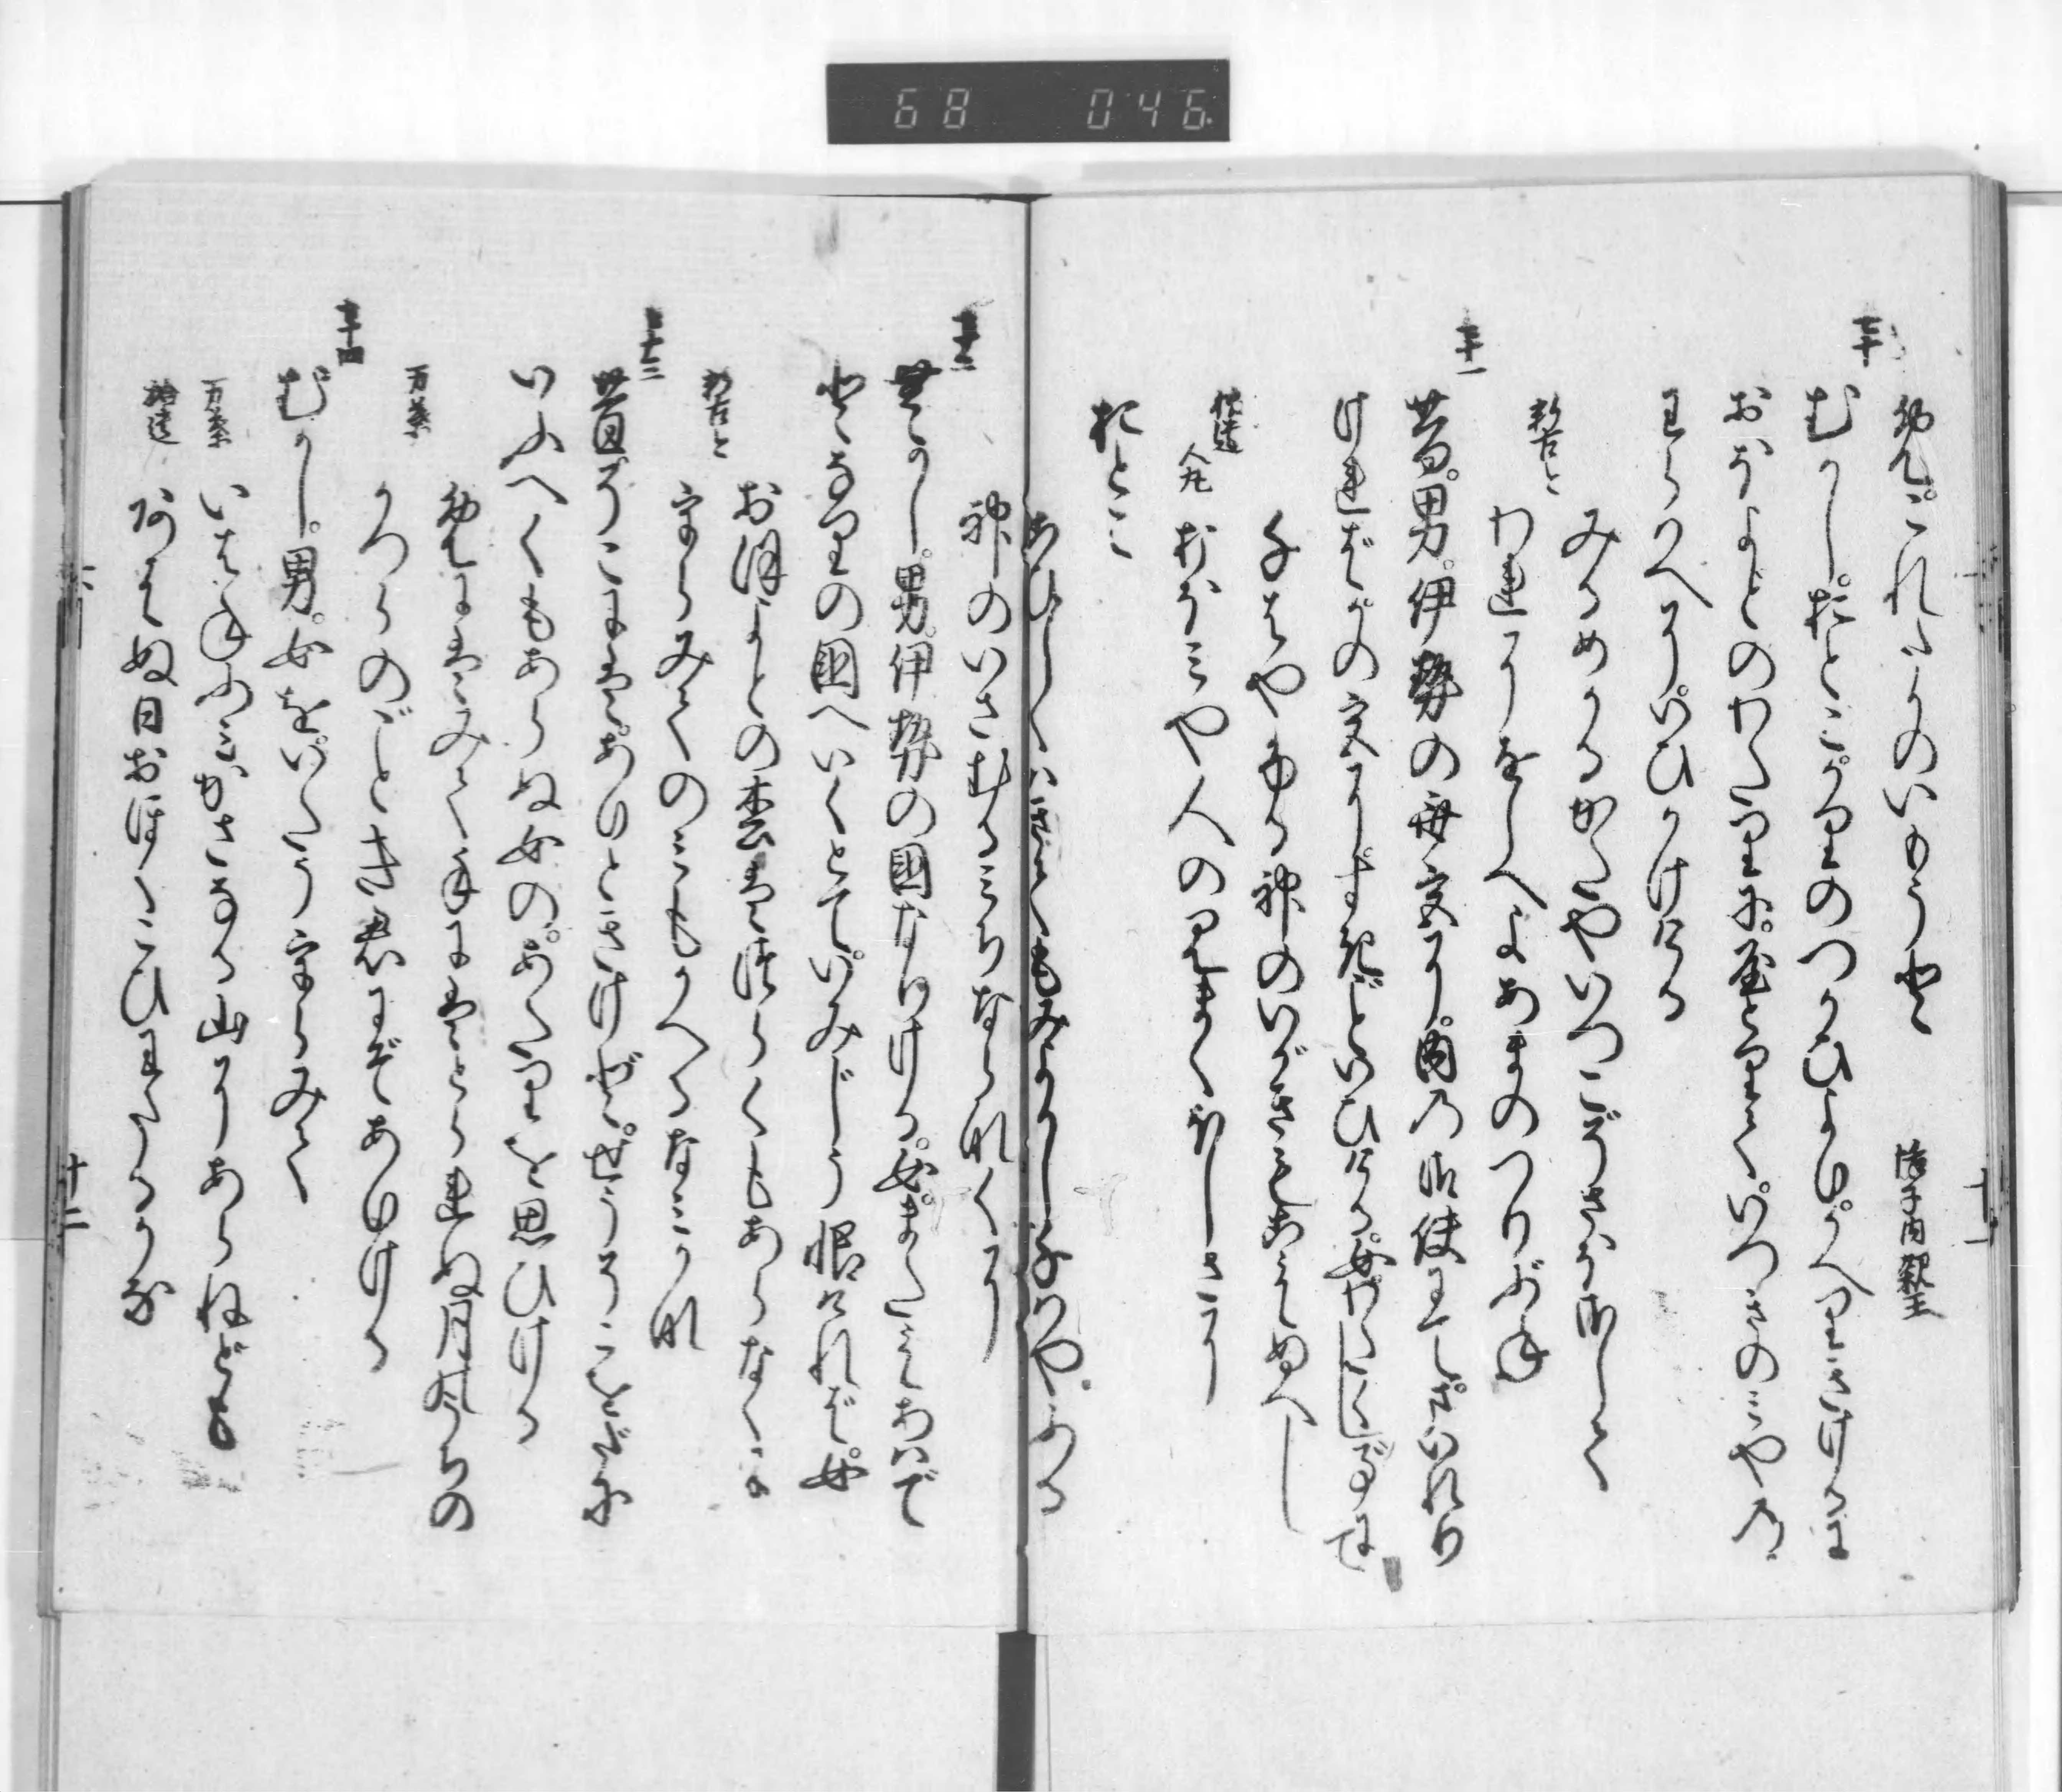 68 046
御門。これたかのいもうと 恬子内親王
七十
むかし。おとこ。かりのつかひより。かへりきけるに
おほよどのわたりに。やどりて。いつきのみやの
わらはべに。いひかけける
新古今
みるめかるかたやいづこぞさほさして
われにをしへよあまのつりぶね
七十一
昔。男。伊勢の斎宮に。内の御使にて。まいれり
ければ。かの宮に。すきごといひける。女。わたくしごとにて
千はやふる神のいがきもこえぬべし
拾遺 人丸
おほみや人の見まくほしさに
おとこ
こひしくはきてもみよかし千はやふる
神のいさむるみちならなくに
七十二
むかし。男。伊勢の国なりける。女。またえあはで
となりの国へいくとて。いみじう恨ければ。女
新古今
おほよどの松はつらくもあらなくに
うらみてのみもかへるなみかな
七十三
昔。そこにはありときけど。せうそこをだに
いふべくもあらぬ女の。あたりを思ひける
万葉
めにはみて手にはとられぬ月のうちの
かつらのごとき君にぞありける
七十四
むかし。男。女を。いたううらみて
万葉
いはねふみかさなる山にあらねども
拾遺
あはぬ日おほくこひわたるかな
十一
十二